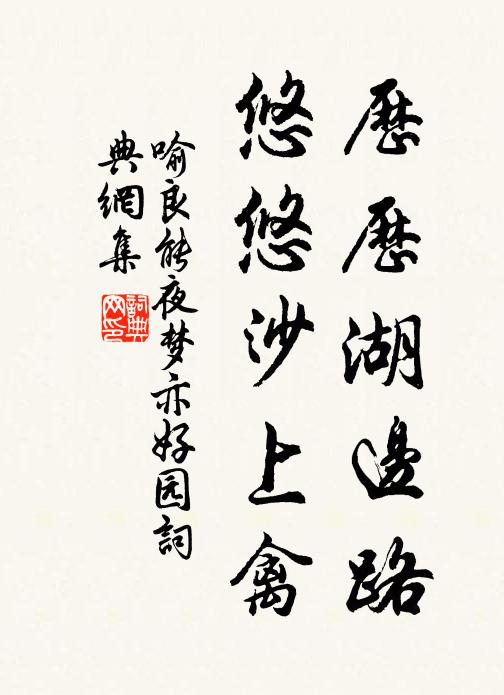 歷歷湖邊路
悠悠沙上禽
喻良能夜梦亦好园詞
典網集
詞典
网印